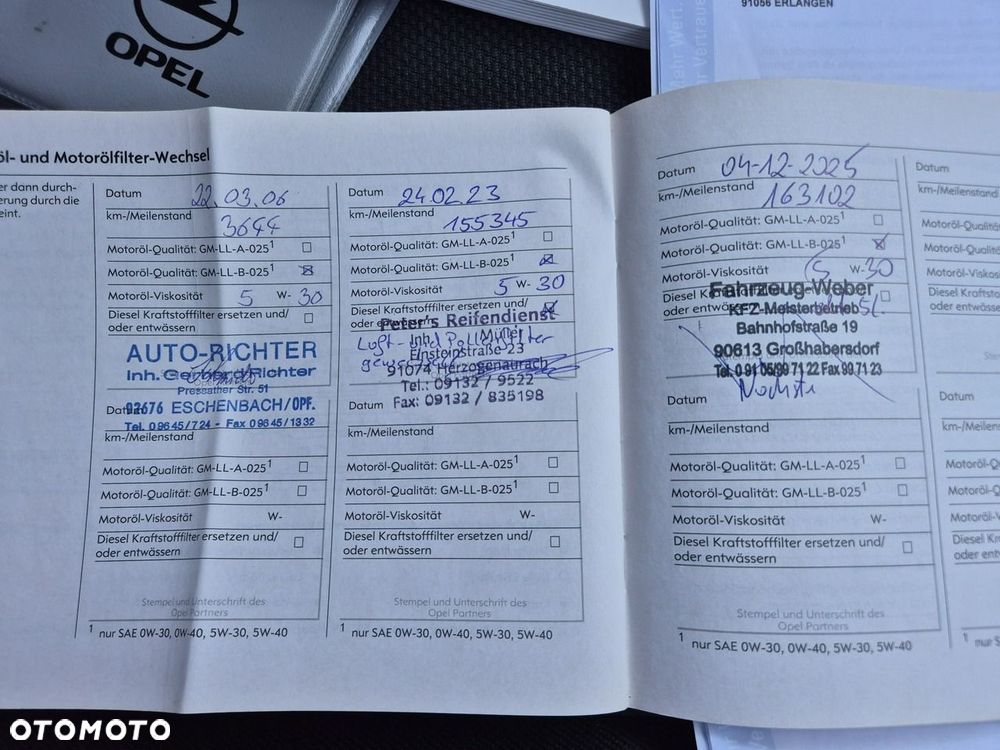 91056 ERLANGEN
Mehr Wert.
OPEL
öl- und Motorölfilter-Wechsel
er dann durch-
erung durch die
eint.
Datum 22.03.06
km-/Meilenstand
3644
Motoröl-Qualität: GM-LL-A-025¹
Motoröl-Qualität: GM-LL-B-025¹
Motoröl-Viskosität 5 W- 30
Diesel Kraftstofffilter ersetzen und/
oder entwässern
AUTO-RICHTER
Inh. Gerhard Richter
Pressather Str. 51
92676 ESCHENBACH/OPF.
Tel. 09645/724 - Fax 09645/1332
Datum
km-/Meilenstand
Motoröl-Qualität: GM-LL-A-025¹
Motoröl-Qualität: GM-LL-B-025¹
Motoröl-Viskosität W-
Diesel Kraftstofffilter ersetzen und/
oder entwässern
Stempel und Unterschrift des
Opel Partners
¹ nur SAE 0W-30, 0W-40, 5W-30, 5W-40
Datum 24.02.23
km-/Meilenstand
155345
Motoröl-Qualität: GM-LL-A-025¹
Motoröl-Qualität: GM-LL-B-025¹
Motoröl-Viskosität 5 W- 30
Diesel Kraftstofffilter ersetzen und/
oder entwässern
Peter's Reifendienst
Luft- und Pollenfilter
Inh. Müller
Einsteinstraße 23
91074 Herzogenaurach
Tel.: 09132 / 9522
Fax: 09132 / 835198
Datum
km-/Meilenstand
Motoröl-Qualität: GM-LL-A-025¹
Motoröl-Qualität: GM-LL-B-025¹
Motoröl-Viskosität W-
Diesel Kraftstofffilter ersetzen und/
oder entwässern
Stempel und Unterschrift des
Opel Partners
¹ nur SAE 0W-30, 0W-40, 5W-30, 5W-40
Datum 04-12-2025
km-/Meilenstand
163102
Motoröl-Qualität: GM-LL-A-025¹
Motoröl-Qualität: GM-LL-B-025¹
Motoröl-Viskosität 5 W-30
Diesel Kraftstofffilter ersetzen und/
oder entwässern
Fahrzeug-Weber
KFZ-Meisterbetrieb
Bahnhofstraße 19
90613 Großhabersdorf
Tel. 0 91 05/99 71 22 Fax 99 71 23
Datum
km-/Meilenstand
Motoröl-Qualität: GM-LL-A-025¹
Motoröl-Qualität: GM-LL-B-025¹
Motoröl-Viskosität W-
Diesel Kraftstofffilter ersetzen und/
oder entwässern
Stempel und Unterschrift des
Opel Partners
¹ nur SAE 0W-30, 0W-40, 5W-30, 5W-40
Datum
km-/Meilenstand
Motoröl-Qualitä
Motoröl-Qualitä
Motoröl-Viskos
Diesel Kraftst
oder entwässe
Datum
km-/Meilen
Motoröl-Q
Motoröl-Q
Motoröl-V
Diesel K
oder ent
¹ nur S
OTOMOTO